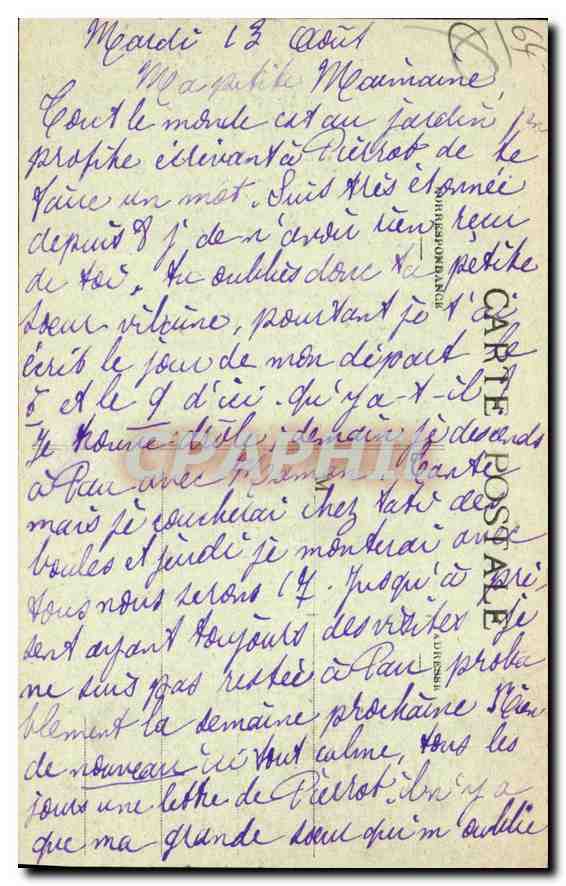 64
Mardi 13 Août
Ma petite Maimaine,
Tout le monde est au jardin j'en
profite écrivant à Pierrot de te
faire un mot. Suis très étonnée
depuis 8 j de n'avoir rien reçu
de toi, tu oublies donc ta petite
soeur vilaine, pourtant je t'ai
écrit le jour de mon départ le
5 et le 9 d'ici. qu'y a-t-il ?
Je trouve drôle, demain je descends
à Pau avec Maman Tante
mais je coucherai chez tati des
boules et jeudi je monterai avec
tous nous serons 17. Jusqu'à pré-
sent ayant toujours des visites je
ne suis pas restée à Pau proba
blement la semaine prochaine Rien
de nouveau ici tout calme, tous les
jours une lettre de Pierrot, il n'y a
que ma grande soeur qui m'oublie
CARTE POSTALE
CORRESPONDANCE
ADRESSE
M
CPAPHIL